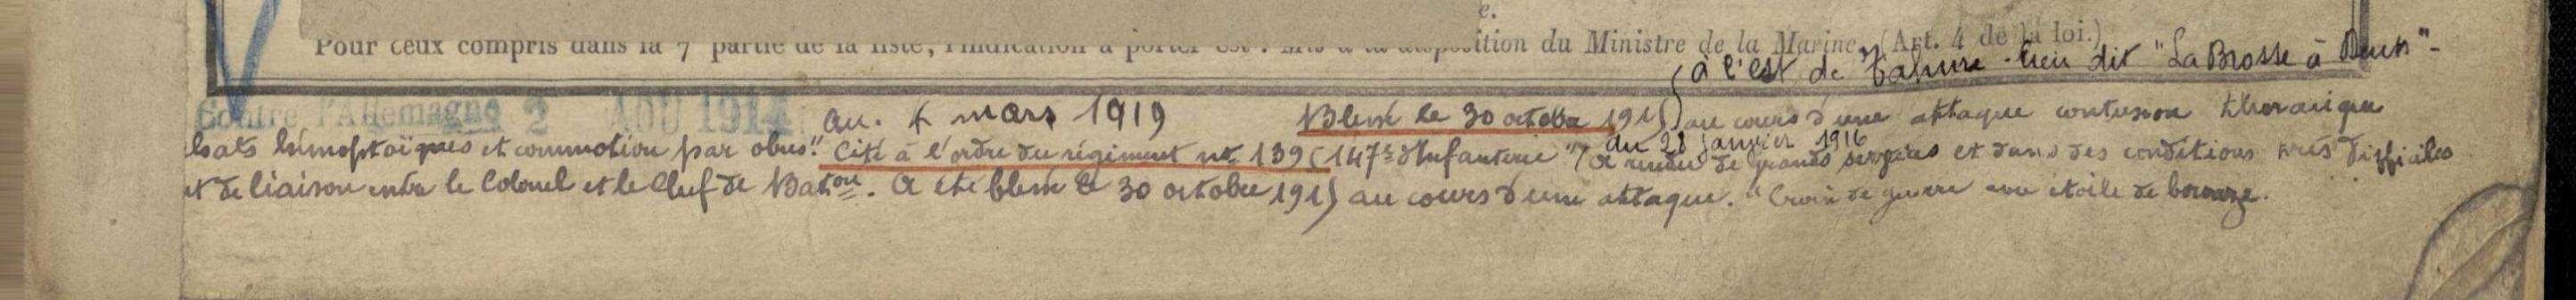 e.
Pour ceux compris dans la 7e partie de la liste, l'indication à porter est : Mis à la disposition du Ministre de la Marine, (Art. 4 de la loi.)
(à l'est de Tahure lieu dit "La Brosse à Dents"-
Contre l'Allemagne 2 AOU 1914 au. 4 mars 1919 Blessé le 30 octobre 1915) au cours d'une attaque contusion thoracique
hats hémoptoïques et commotion par obus." Cité à l'ordre du régiment no 139 (147e d'Infanterie du 28 janvier 1916 "A rendu de grands services et dans des conditions très difficiles
nt de liaison entre le Colonel et le Chef de Baton. A été blessé le 30 octobre 1915 au cours d'une attaque." Croix de guerre avec étoile de bronze.